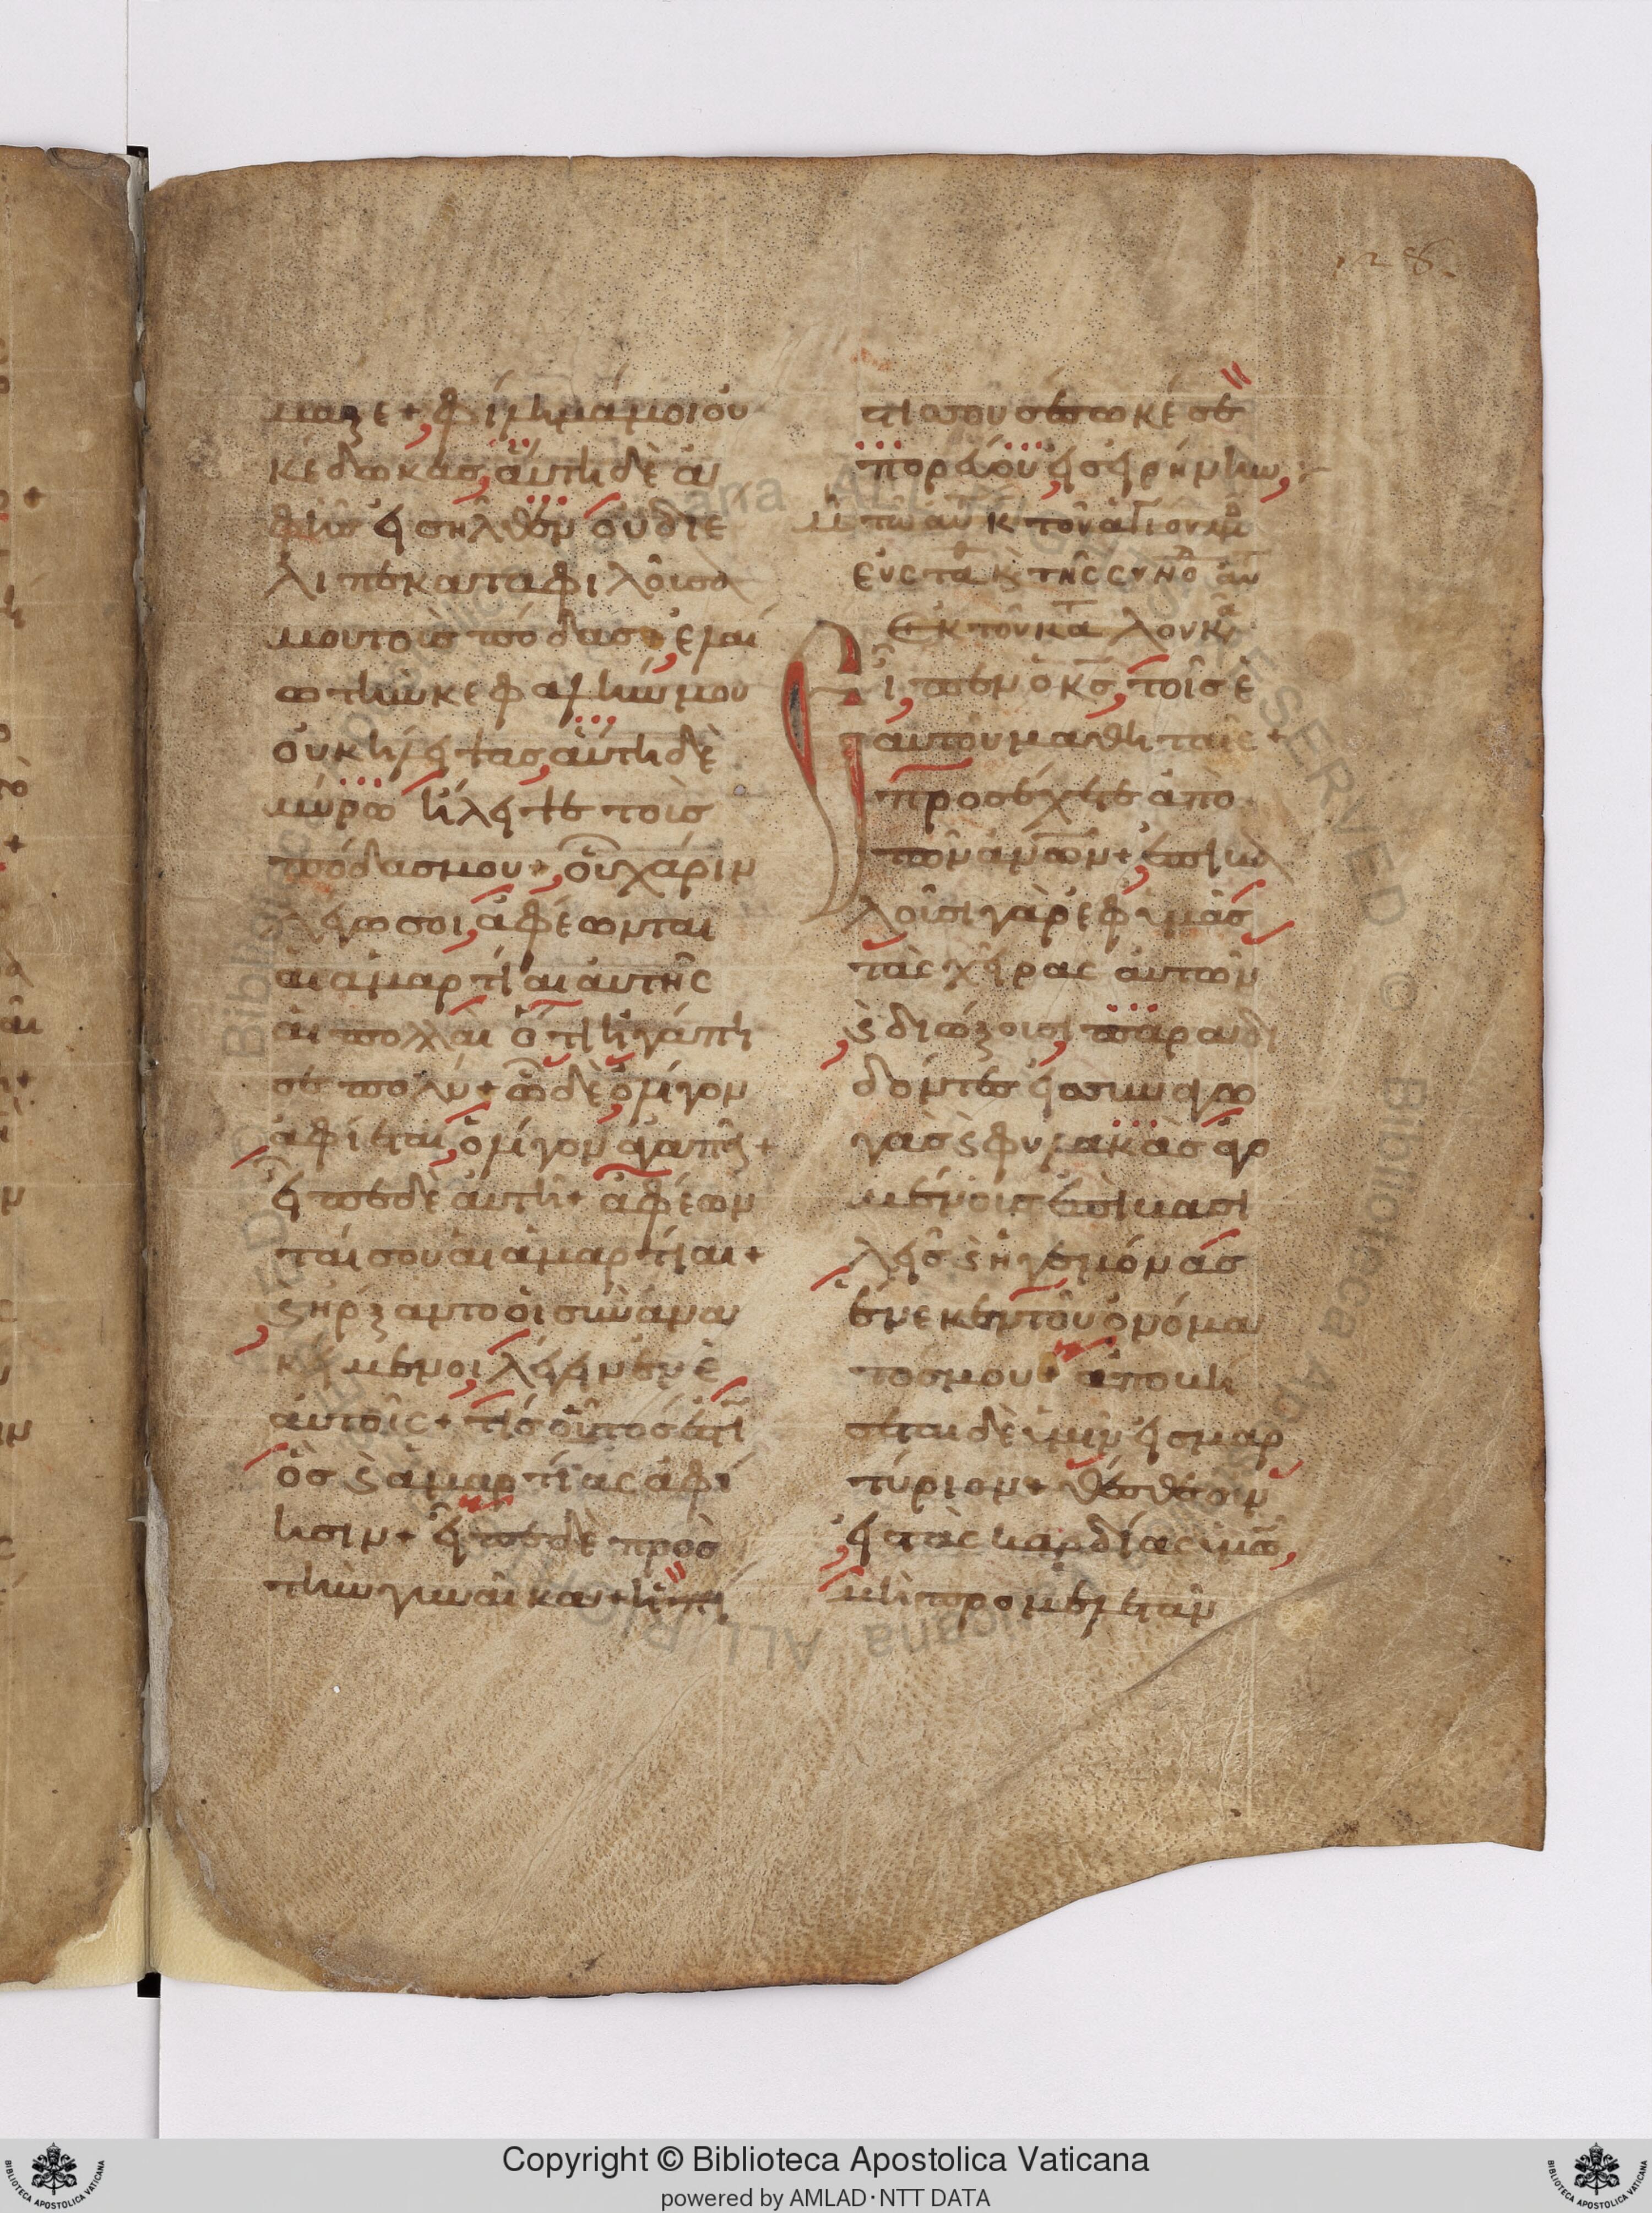 128.
μαξε + φίλημά μοι οὐ
κέδωκας, ἄυτη δὲ ἀ
φῆς εἰσῆλθον οὐ διε
λιπε καταφιλοῦσα
μου τοὺς πόδας + ἐλαί
ω τὴν κεφαλήν μου
οὐκ ἤλειψας, ἄυτη δὲ
μύρω ἤλειψε τοὺς
πόδας μου + οὗ χάριν
λέγω σοι, ἀφέωνται
αι ἁμαρτίαι ἀυτῆς
ἁι πολλαὶ ὅτι ἠγάπη
σε πολύ + ὧ δὲ ὀλίγον
ἀφίεται, ὀλίγον ἀγαπᾶ +
εἶπε δὲ ἀυτῆ + ἀφέων
ταί σου ἁι ἁμαρτίαι +
ϗ ἤρξαντο ὁι συνανα
κείμενοι, λέγειν ἐν ἑ
αυτοῖς + τίς οὗτος ἐστὶ
ὃς ϗ ἁμαρτίας ἀφί
ησιν + εἶπε δὲ πρὸς
τὴν γυναῖκα + ἡ πί
στις σου σέσωκέ σε
πορεύου εἰς εἰρήνην,
ἐκ τοῦ κατὰ λουκᾶ
Εἶπεν ὁ κς, τοῖς ἑ
αυτοῦ μαθηταῖς +
προσέχετε ἀπὸ
τῶν ἀνων + ἐπιβα
λοῦσι γὰρ ἐφ ὑμᾶς
τὰς χεῖρας ἀυτῶν
ϗ διώξουσι, παραδι
δόντες εἰς συναγω
γὰς ϗ φυλακὰς ἀγο
μένους ἐπὶ βασι
λεῖς ϗ ἡγεμόνας
ἕνεκεν τοῦ ὀνόμα
τός μου + ἀποβή
σεται δὲ ὑμῖν εἰς μαρ
τύριον + θέσθε οὖν
εἰς τὰς καρδίας ὑμῶν,
μὴ προμελετᾶν
Copyright © Biblioteca Apostolica Vaticana
powered by AMLAD·NTT DATA